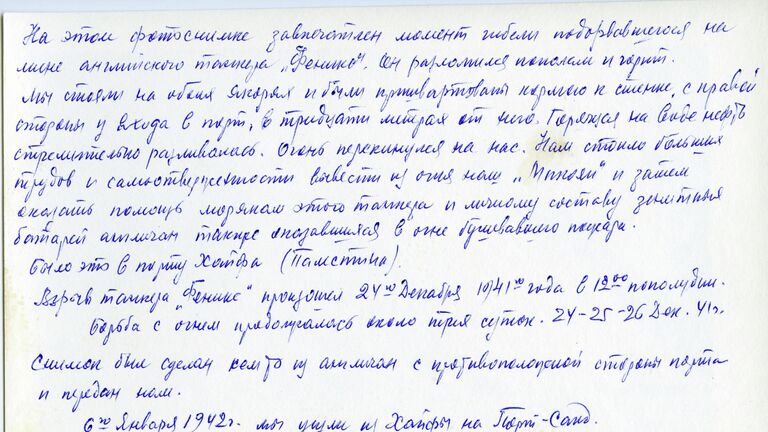 На этом фотоснимке запечатлен момент гибели подорвавшегося на
мине английского танкера „Феникс". Он разломился пополам и горит.
Мы стояли на обоих якорях и были пришвартованы кормою к стенке, с правой
стороны у входа в порт, в тридцати метрах от него. Горящая на воде нефть
стремительно разливалась. Огонь перекинулся на нас. Нам стоило больших
трудов и самоотверженности вывести из огня наш „Микоян" и затем
оказать помощь морякам этого танкера и личному составу зенитных
батарей англичан также оказавшихся в огне бушевавшего пожара.
Было это в порту Хайфа (Палестина).
Взрыв танкера „Феникс" произошел 24го Декабря 1941го года в 1200 пополудни.
Борьба с огнем продолжалась около трех суток. 24-25-26 Дек. 41г.
Снимок был сделан кем то из англичан с противоположной стороны порта
и передан нам.
6го Января 1942г. мы ушли из Хайфы на Порт-Саид.